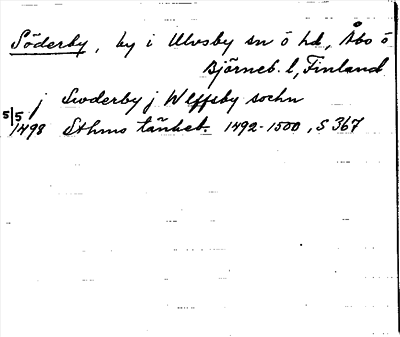 Söderby, by i Ulvsby sn ö hd, Åbo ö
Björneb. l, Finland
j Swderby j Wlffsby sochn
5/5 1498 Sthms tänkeb. 1492-1500, S 367